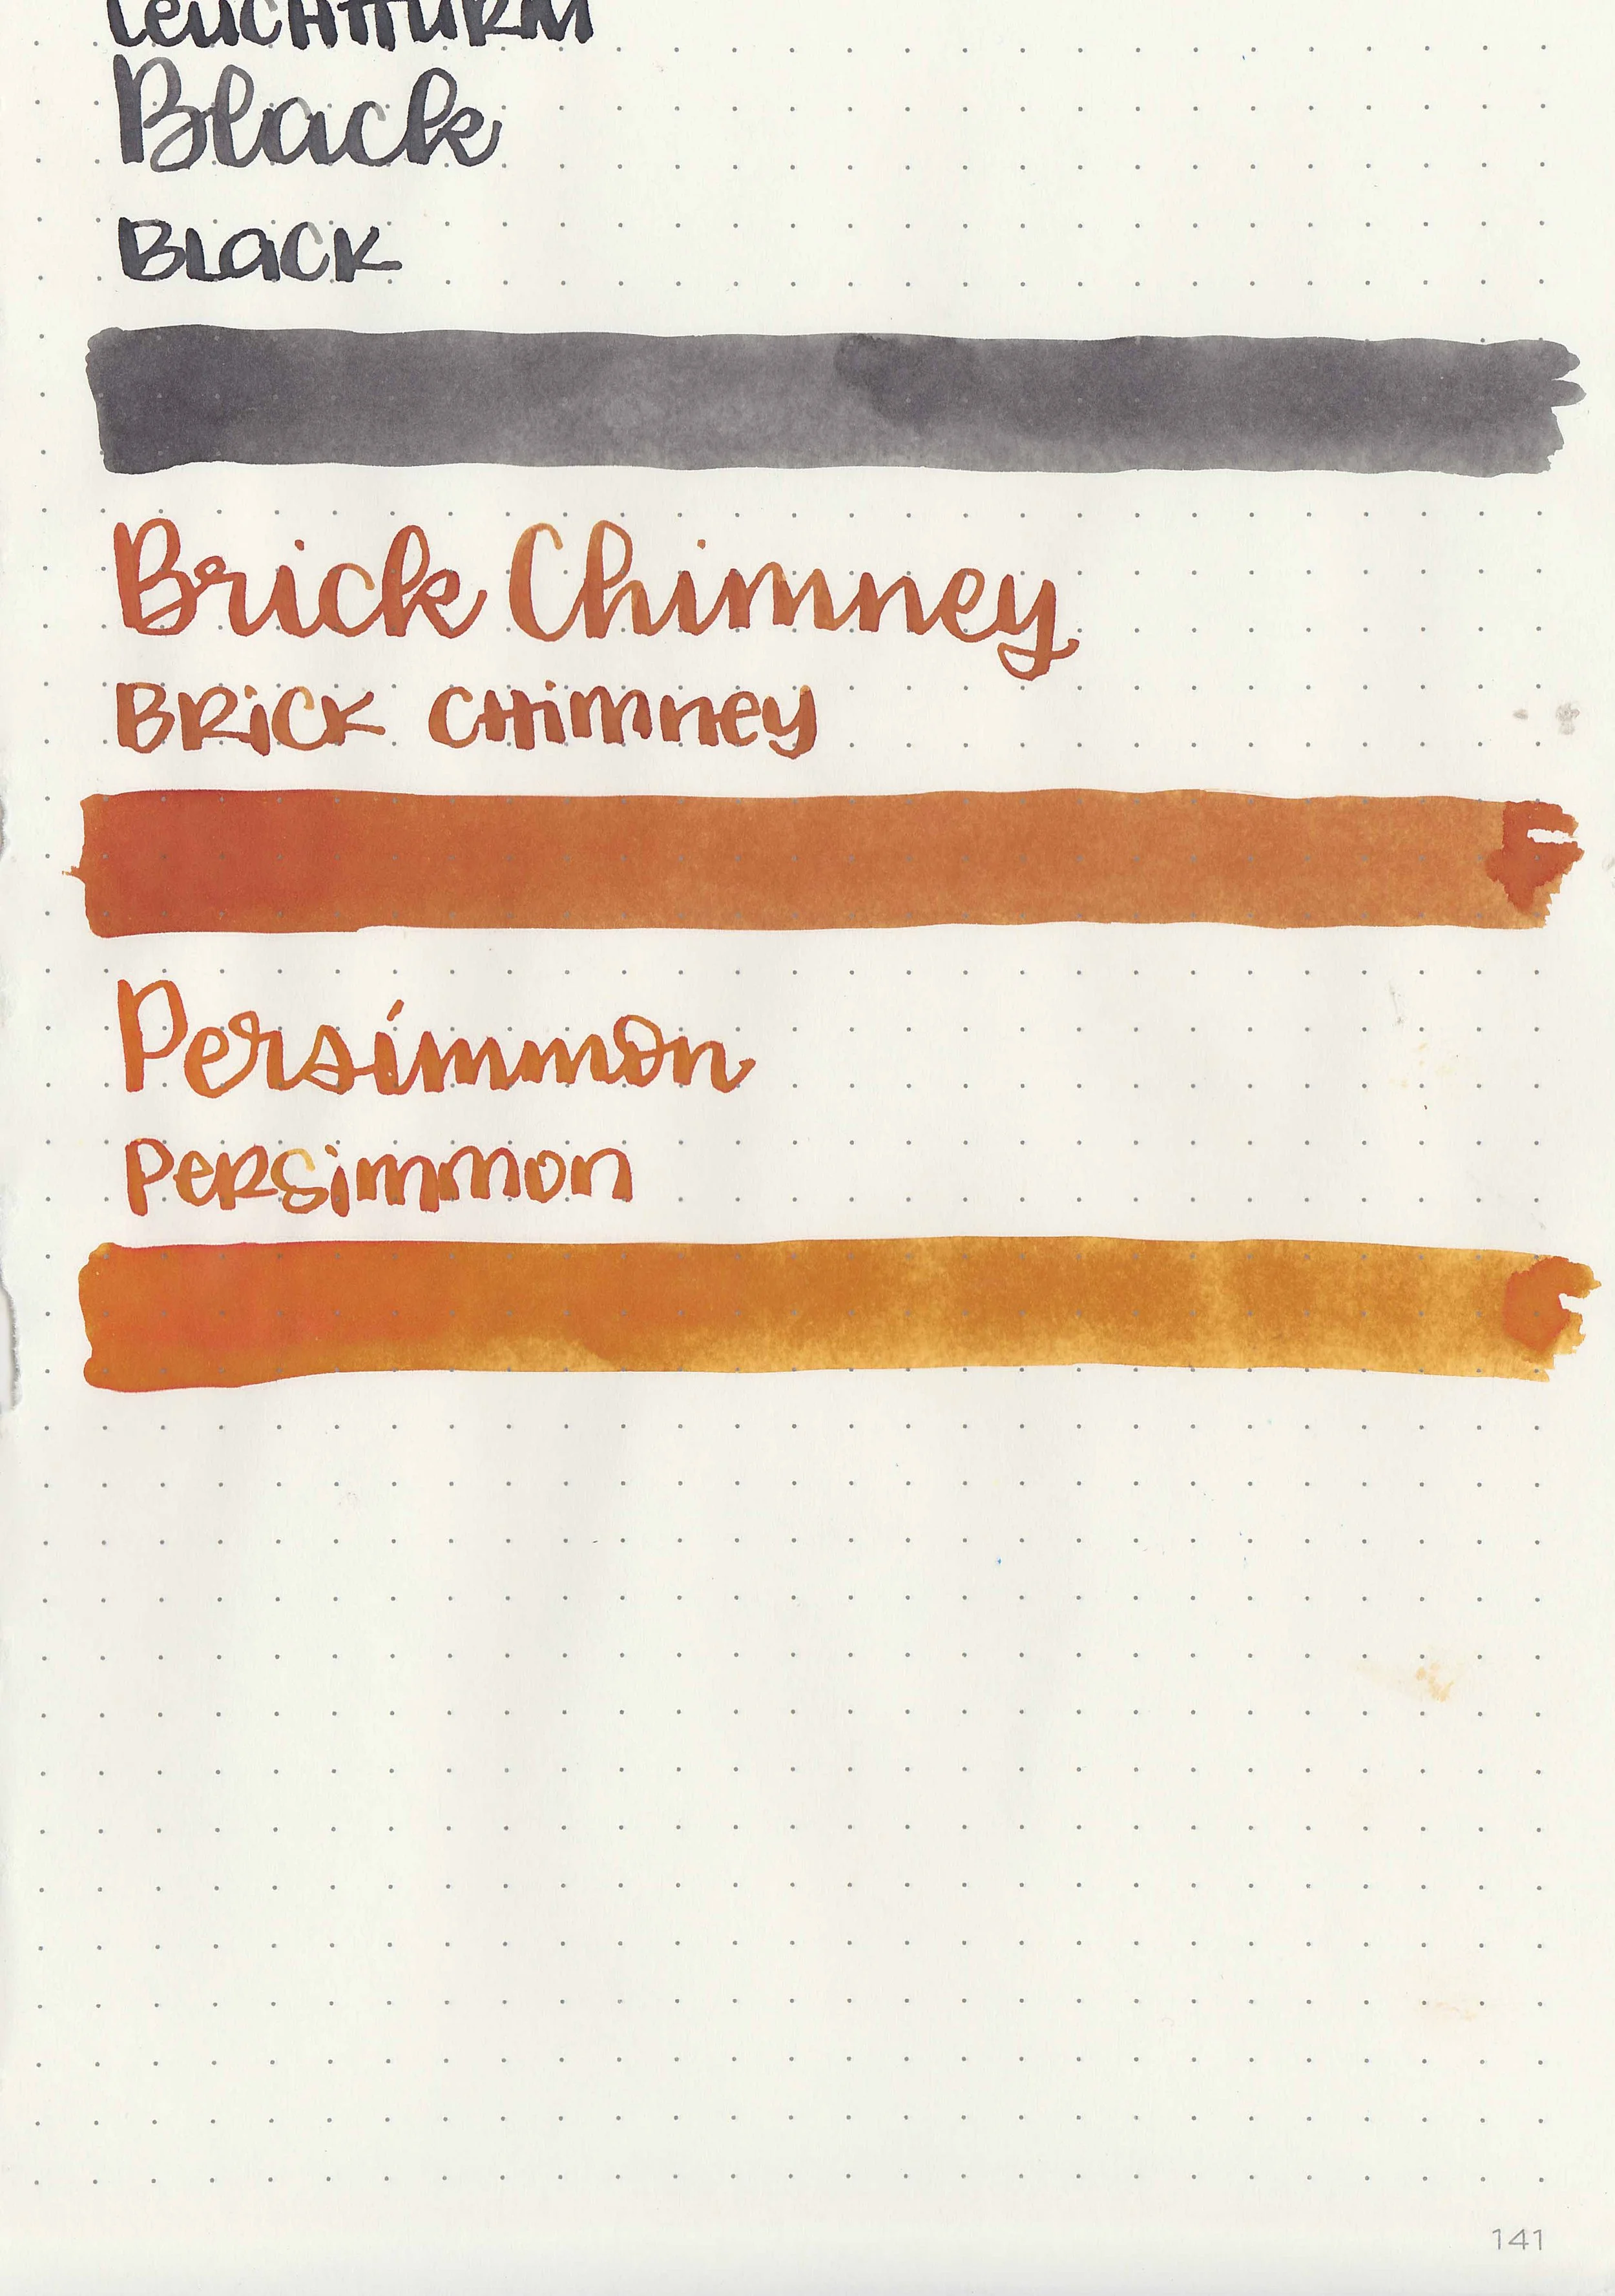 LEUCHTTURM
Black
BLACK
Brick Chimney
BRICK CHIMNEY
Persimmon
PERSIMMON
141